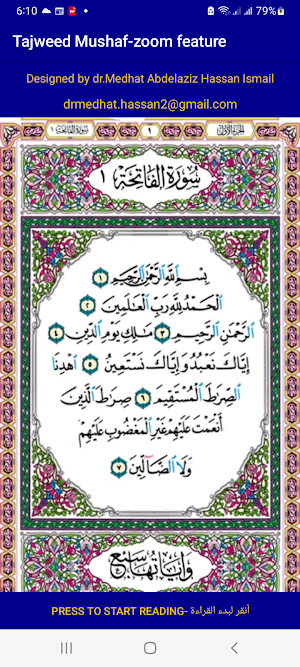 6:10
79%
Tajweed Mushaf-zoom feature
Designed by dr.Medhat Abdelaziz Hassan Ismail
drmedhat.hassan2@gmail.com
الجزء الأول ١ سورة الفاتحة ١
سورة الفاتحة ١
بسم الله الرحمن الرحيم ١
الحمد لله رب العالمين ٢
الرحمن الرحيم ٣ مالك يوم الدين ٤
إياك نعبد وإياك نستعين ٥ اهدنا
الصراط المستقيم ٦ صراط الذين
أنعمت عليهم غير المغضوب عليهم
ولا الضالين ٧
وآياتها سبع
PRESS TO START READING- أنقر لبدء القراءة